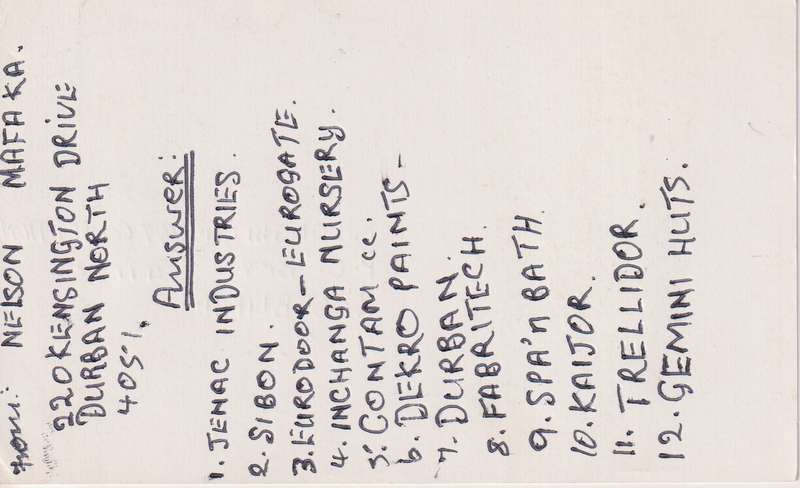 From: NELSON MAFAKA.
220 KENSINGTON DRIVE
DURBAN NORTH
4051.
Answer:
1. JENAC INDUSTRIES.
2. SIBON.
3. EURODOOR-EUROGATE.
4. INCHANGA NURSERY.
5. CONTAM cc.
6. DEKRO PAINTS-
7. DURBAN.
8. FABRITECH.
9. SPA'n BATH.
10. KAIJOR.
11. TRELLIDOR.
12. GEMINI HUTS.